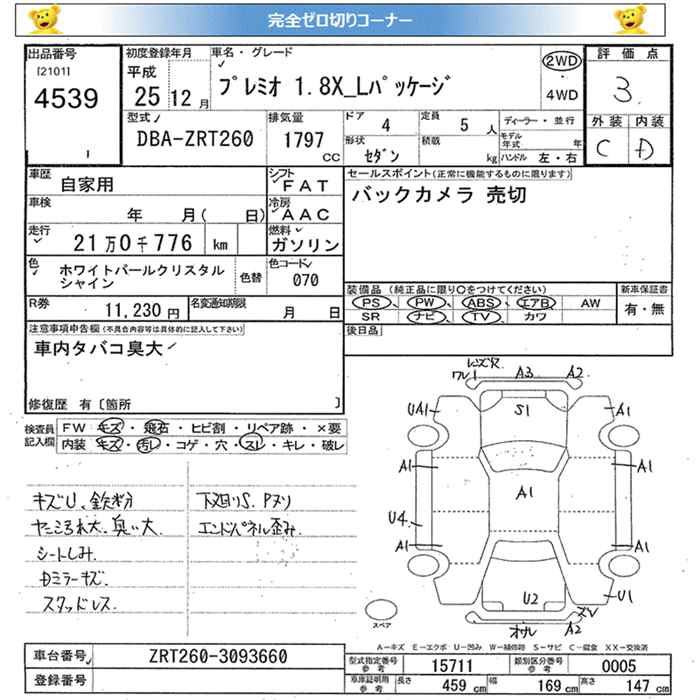 完全ゼロ切りコーナー
出品番号
[2101]
4539
初度登録年月
平成
25 12 月
車名・グレード
プレミオ 1.8X_Lパッケージ
2WD
・
4WD
評価点
3
外装 内装
C D
型式
DBA-ZRT260
排気量
1797
CC
ドア 4
定員 5 人
形状 セダン
積載 kg
ディーラー・並行
モデル年式 年
ハンドル 左・右
車歴
自家用
シフト
FAT
車検
年 月( 日)
冷房
AAC
走行
21万0千776 km
燃料
ガソリン
色
ホワイトパールクリスタル
シャイン
色替
色コード
070
R券
11,230 円
名変通知期限
月 日
セールスポイント(正常に機能するものに限ります)
バックカメラ 売切
装備品(純正品に限り○をつけてください)
PS、 PW、 ABS、 エアB AW
SR ナビ、 TV、 カワ
新車保証書
有・無
後日品
注意事項申告欄(不具合内容等は具体的に記入して下さい)
車内タバコ臭大
修復歴 有〔箇所 〕
検査員
記入欄
FW キズ・飛石・ヒビ割・リペア跡・×要
内装 キズ・汚レ・コゲ・穴・スレ・キレ・破レ
キズU、鉄粉
ヤニよごれ大、臭い大
シートしみ
Dミラーキズ
スタッドレス
下廻りS、Pヌリ
エンドパネル歪み
レンズX
ワレ1 A3 A2
UA1 S1 A1
A1 A1 A1
U4
A1 A1
U2 U1
オサレ A2 ズレ
スペア
A-キズ E-エクボ U-凹み W-補修跡 S-サビ C-腐食 XX-交換済
車台番号
ZRT260-3093660
登録番号
型式指定番号
参考
15711
類別区分番号
参考
0005
車庫証明用
参考
長さ 459 cm
幅 169 cm
高さ 147 cm